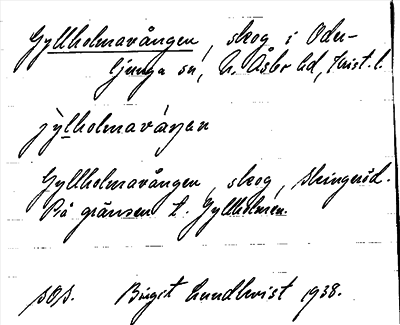 Gyllholmavången, skog i Oder-
ljunga sn, N. Åsbo hd, Krist. l.
jylholmavaŋan
Gyllholmavången, skog, Skingeröd.
På gränsen t. Gyllholmen.
SOS. Birgit Lundkvist 1938.